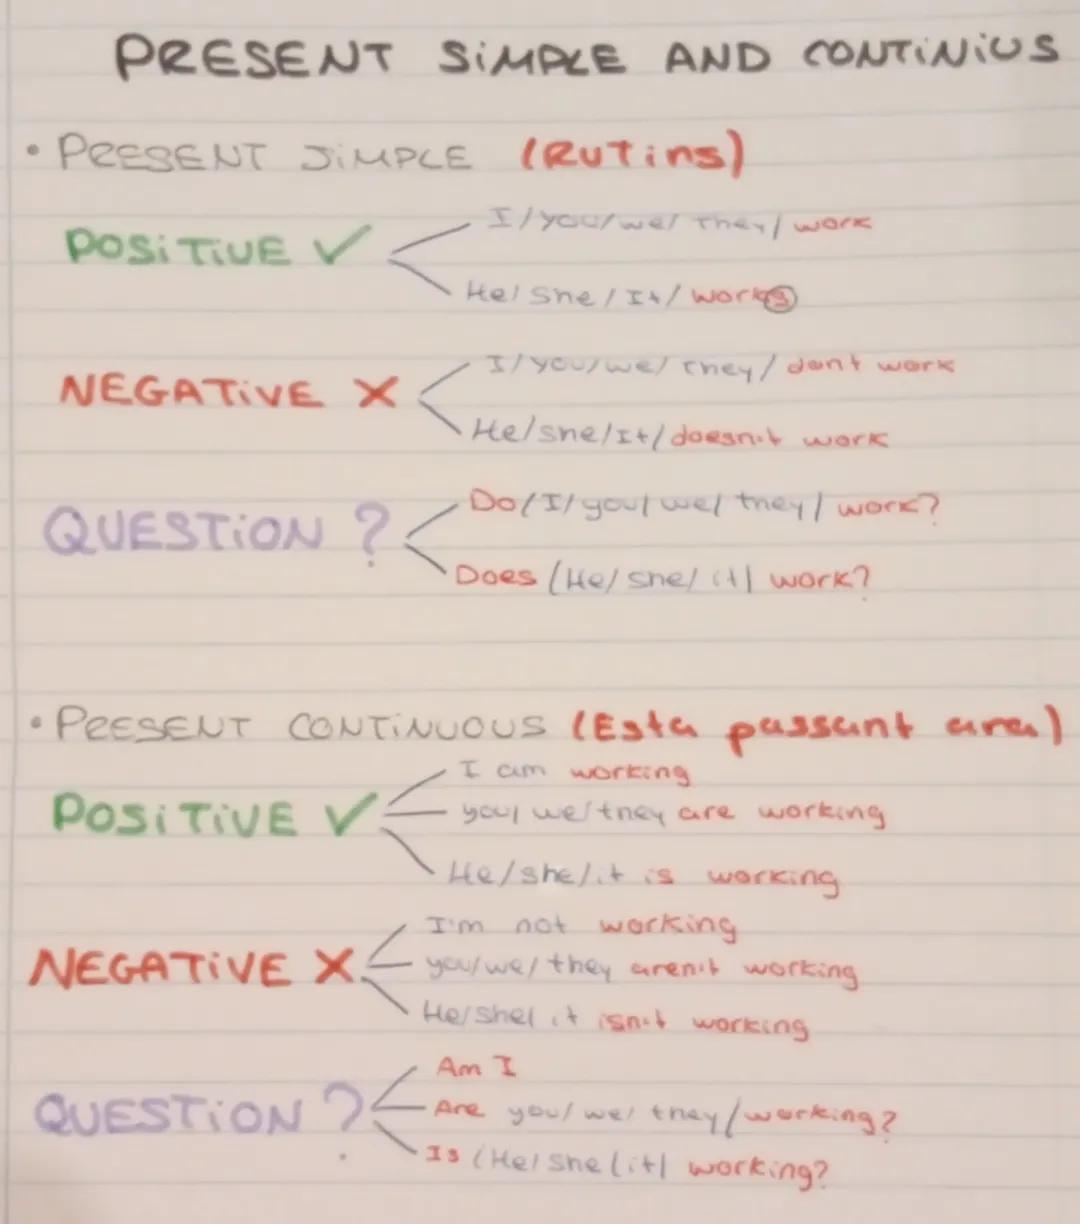 PRESENT SIMPLE AND CONTINIUS
• PRESENT SIMPLE (Rutins)
POSITIVE ✓
I/you/we/ they/ work
He/ she / It/ works
NEGATIVE X
I/you/we/ they/ dont work
He/she/It/ doesn't work
QUESTION ?
Do/I/you/ we/ they/ work?
Does (He/ she/ it/ work?
• PRESENT CONTINUOUS (Esta passant ara)
POSITIVE ✓
I am working
you/ we/they are working
He/she/it is working
NEGATIVE X
I'm not working
you/we/ they aren't working
He/she/ it isn't working
QUESTION ?
Am I
Are you/ we/ they/working?
Is (He/ she/it/ working?